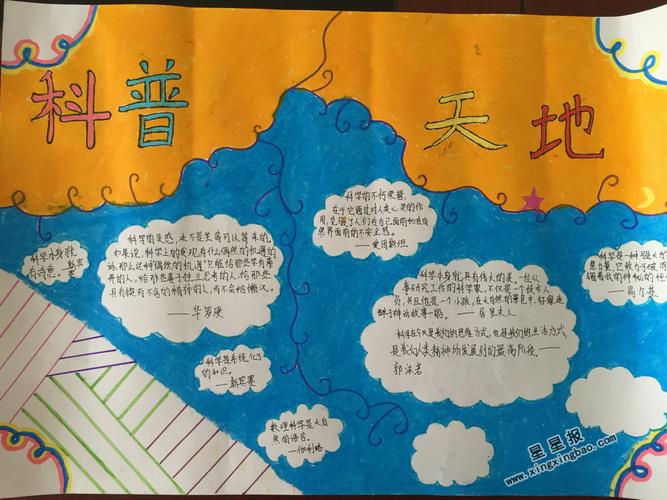 科普 天地
科学本身就
有诗意。
科学的灵感,决不是坐等可以等来的。
如果说,科学上的发现有什么偶然的机遇的
话,那么这种偶然的机遇只能给那些学有素
养的人,给那些善于独立思考的人,给那些
具有锲而不舍的精神的人,而不会给懒汉。
——华罗庚
科学的不朽荣誉,
在于它通过对人类心灵的作
用,克服了人们在自己面前和在自
然界面前的不安全感。
——爱因斯坦
科学本身就具有伟大的美。一位从
事研究工作的科学家,不仅是一个技术人
员,并且他是一个小孩,在大自然的景色中,好像迷
醉于神话故事一般。——居里夫人
科学在今天是我们的思维方式,也是我们的生活方式,
是我们人类精神所发展到的最高阶段。——
郭沫若
科学是一种强大的
——高尔基
科学是系统化了
的知识。
——斯宾塞
数理科学是大自
然的语言。
——伽利略
星星报
www.xingxingbao.com